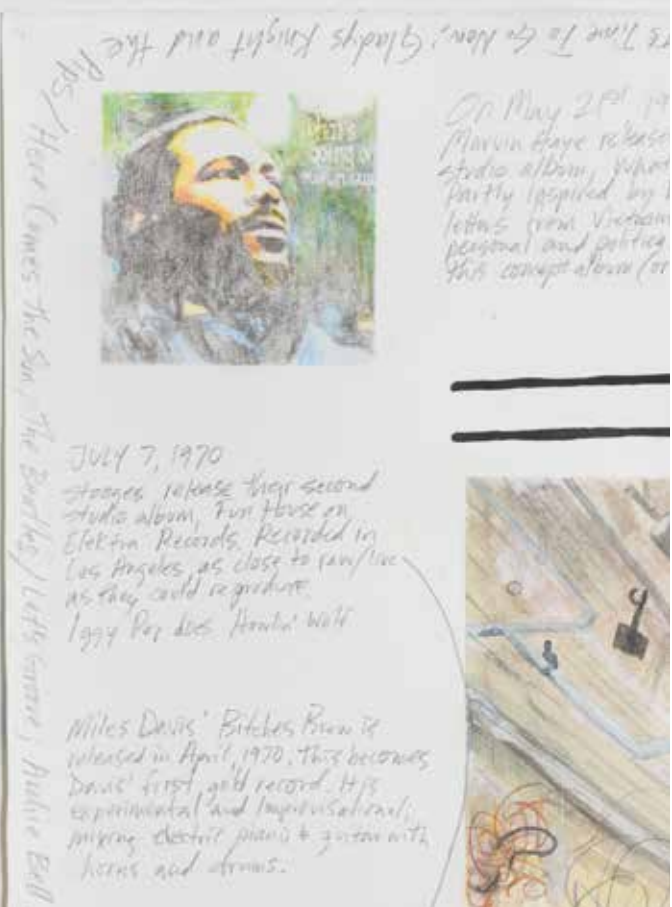 Time To Go Now, Gladys Knight and the
Pips/
Here Comes the Sun, The Beatles/Let's Groove, Archie Bell
what's
going on
On May 21st, 19
Marvin Gaye release
studio album, What
Partly inspired by
letters from Vietnam
personal and political
this concept album (or
JULY 7, 1970
Stooges release their second
studio album, Fun House on
Elektra Records. Recorded in
Los Angeles, as close to raw/live
as they could reproduce.
Iggy Pop does Howlin' Wolf
Miles Davis' Bitches Brew is
released in April, 1970. This becomes
Davis' first gold record. It is
experimental and improvisational,
mixing electric piano & guitar with
horns and drums.